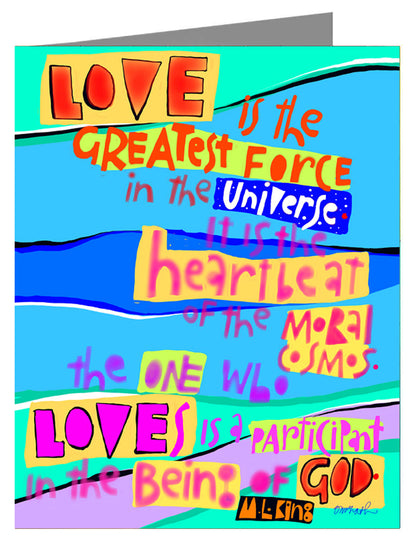 LOVE
is the
GREATEST FORCE
in the Universe.
It is the
heartbeat
of the MORAL
COSMOS.
the ONE who
LOVES is a PARTICIPANT
in the BEING of GOD.
M.L. King